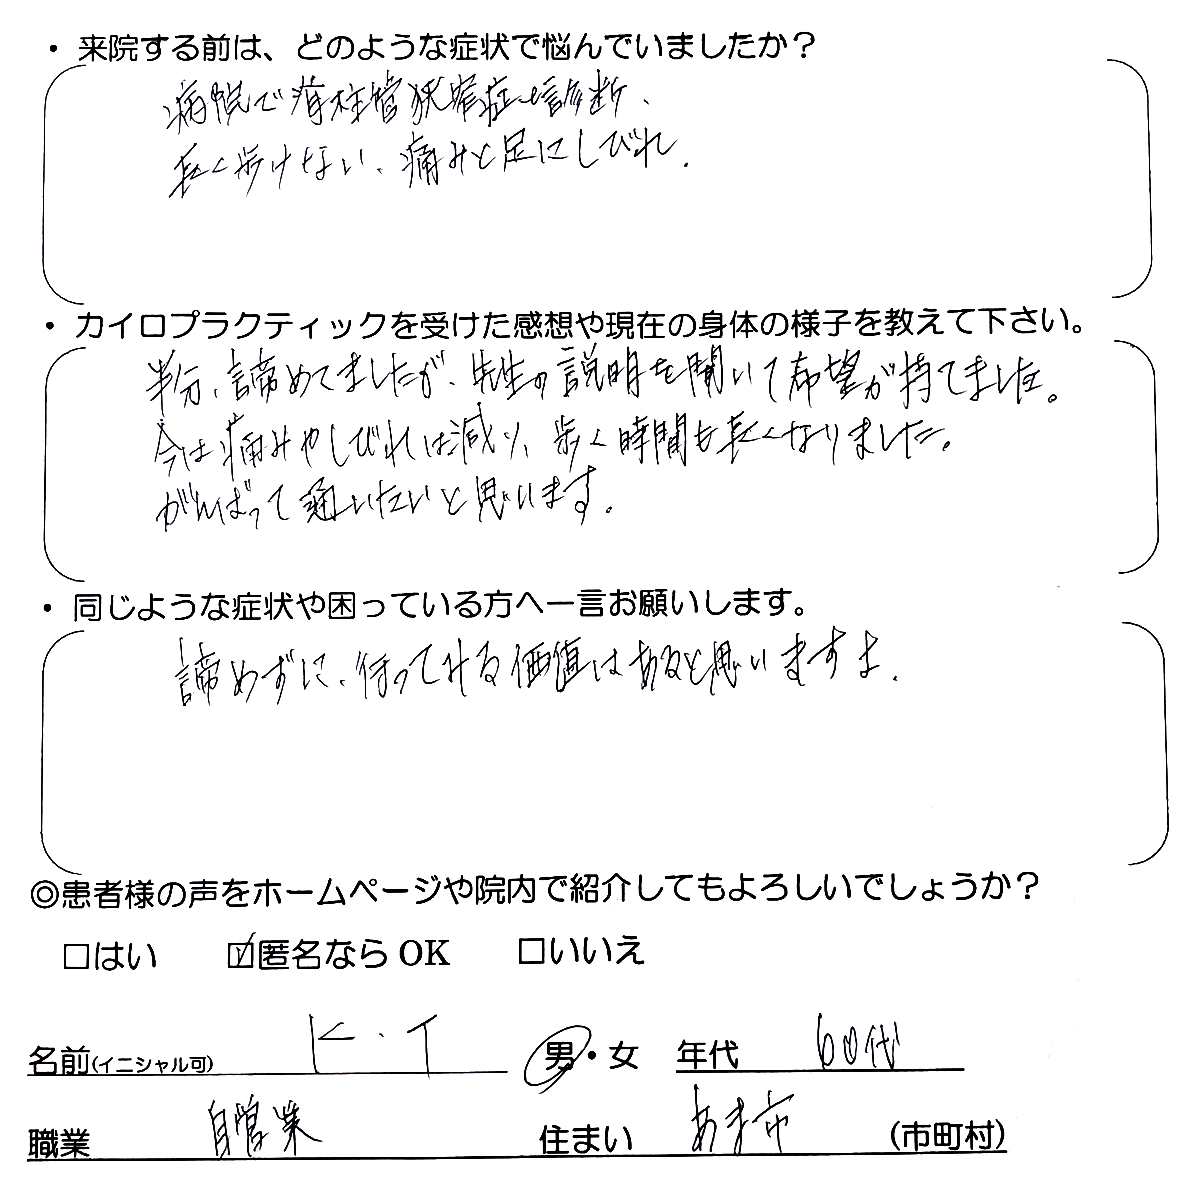 ・来院する前は、どのような症状で悩んでいましたか？
病院で脊柱管狭窄症と診断、
長く歩けない、痛みと足にしびれ.
・カイロプラクティックを受けた感想や現在の身体の様子を教えて下さい。
半分、諦めてましたが、先生の説明を聞いて希望が持てました。
今は痛みやしびれは減り、歩く時間も長くなりました。
がんばって通いたいと思います。
・同じような症状や困っている方へ一言お願いします。
諦めずに、行ってみる価値はあると思いますよ.
◎患者様の声をホームページや院内で紹介してもよろしいでしょうか？
□はい ☑匿名ならOK □いいえ
名前(イニシャル可) K・T 男・女 年代 60代
職業 自営業 住まい あま市 (市町村)